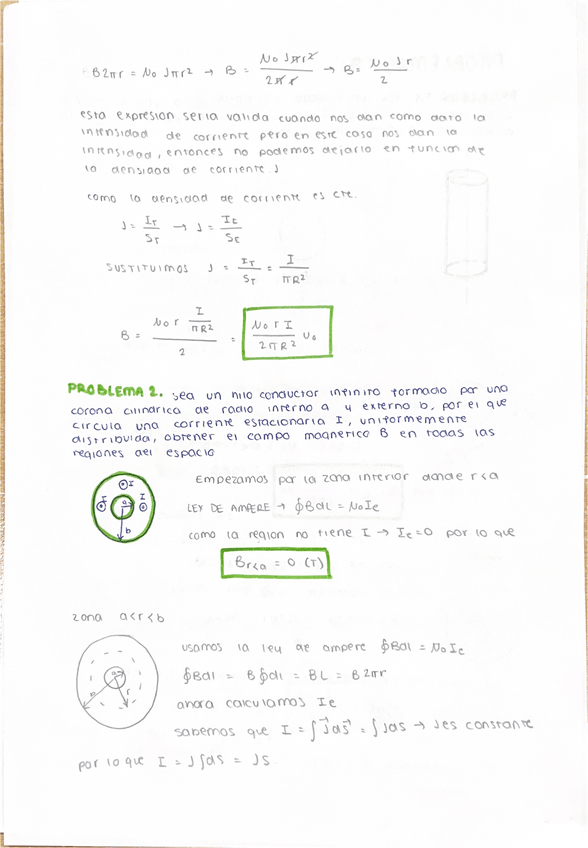 B2πr = μ₀ Jπr² → B = μ₀ Jπr² / 2πr → B = μ₀ Jr / 2
esta expresion seria valida cuando nos dan como dato la
intensidad de corriente pero en este caso nos dan la
intensidad, entonces no podemos dejarlo en funcion de
la densidad de corriente J
como la densidad de corriente es cte.
J = I_T / S_T → J = I_E / S_E
SUSTITUIMOS J = I_T / S_T = I / πR²
B = μ₀ r I/πR² / 2 = μ₀ r I / 2πR² u₀
PROBLEMA 2. Sea un hilo conductor infinito formado por una
corona cilindrica de radio interno a y externo b, por el que
circula una corriente estacionaria I, uniformemente
distribuida, obtener el campo magnetico B en todas las
regiones del espacio
I
I a I
b
Empezamos por la zona interior donde r<a
LEY DE AMPERE → ∮Bdl = μ₀I_E
como la region no tiene I → I_E = 0 por lo que
B_r<a = 0 (T)
zona a<r<b
a
b r
usamos la ley de ampere ∮Bdl = μ₀ I_E
∮Bdl = B∮dl = BL = B2πr
ahora calculamos I_E
sabemos que I = ∫J⃗ds⃗ = ∫Jds → J es constante
por lo que I = J∫ds = JS.